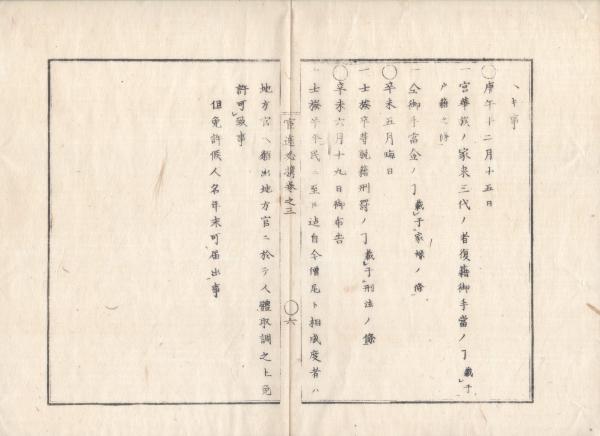 ヘキ事
○庚午十二月十五日
一宮華族ノ家来三代ノ者復籍御手當ノ丁載于
戸籍之條
一仝御手當金ノ丁載于家祿ノ條
○辛未五月晦日
一士族卒等脱籍刑罰ノ丁載于刑法ノ條
○辛未六月十九日御布告
士族卒平民ニ至ル迠自今僧尼ト相成度者ハ
之三
○六
地方官ヘ願出地方官ニ於テ人體取調之上免
許可致事
但免許候人名年末可届出事